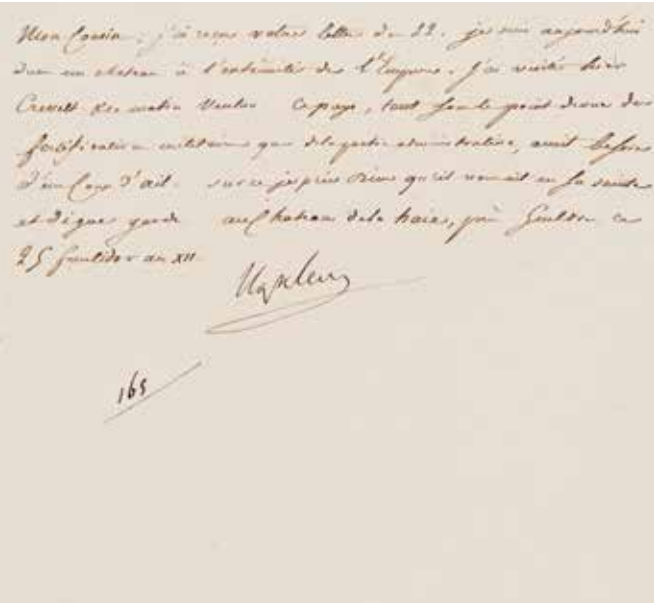 Mon Cousin, j'ai reçu votre lettre du 22. je suis aujourd'hui
dans un chateau à l'extrémité de l'Empire. J'ai visité hier
Crevelt & ce matin Venloo Ce pays, tant sous le point de vue des
fortifications militaires que de la partie administrative, avait besoin
d'un Coup d'œil. sur ce je prie Dieu qu'il vous ait en sa sainte
et digne garde au Chateau de la haie, près Gueldre ce
25 fructidor an XII
Napoleon
165